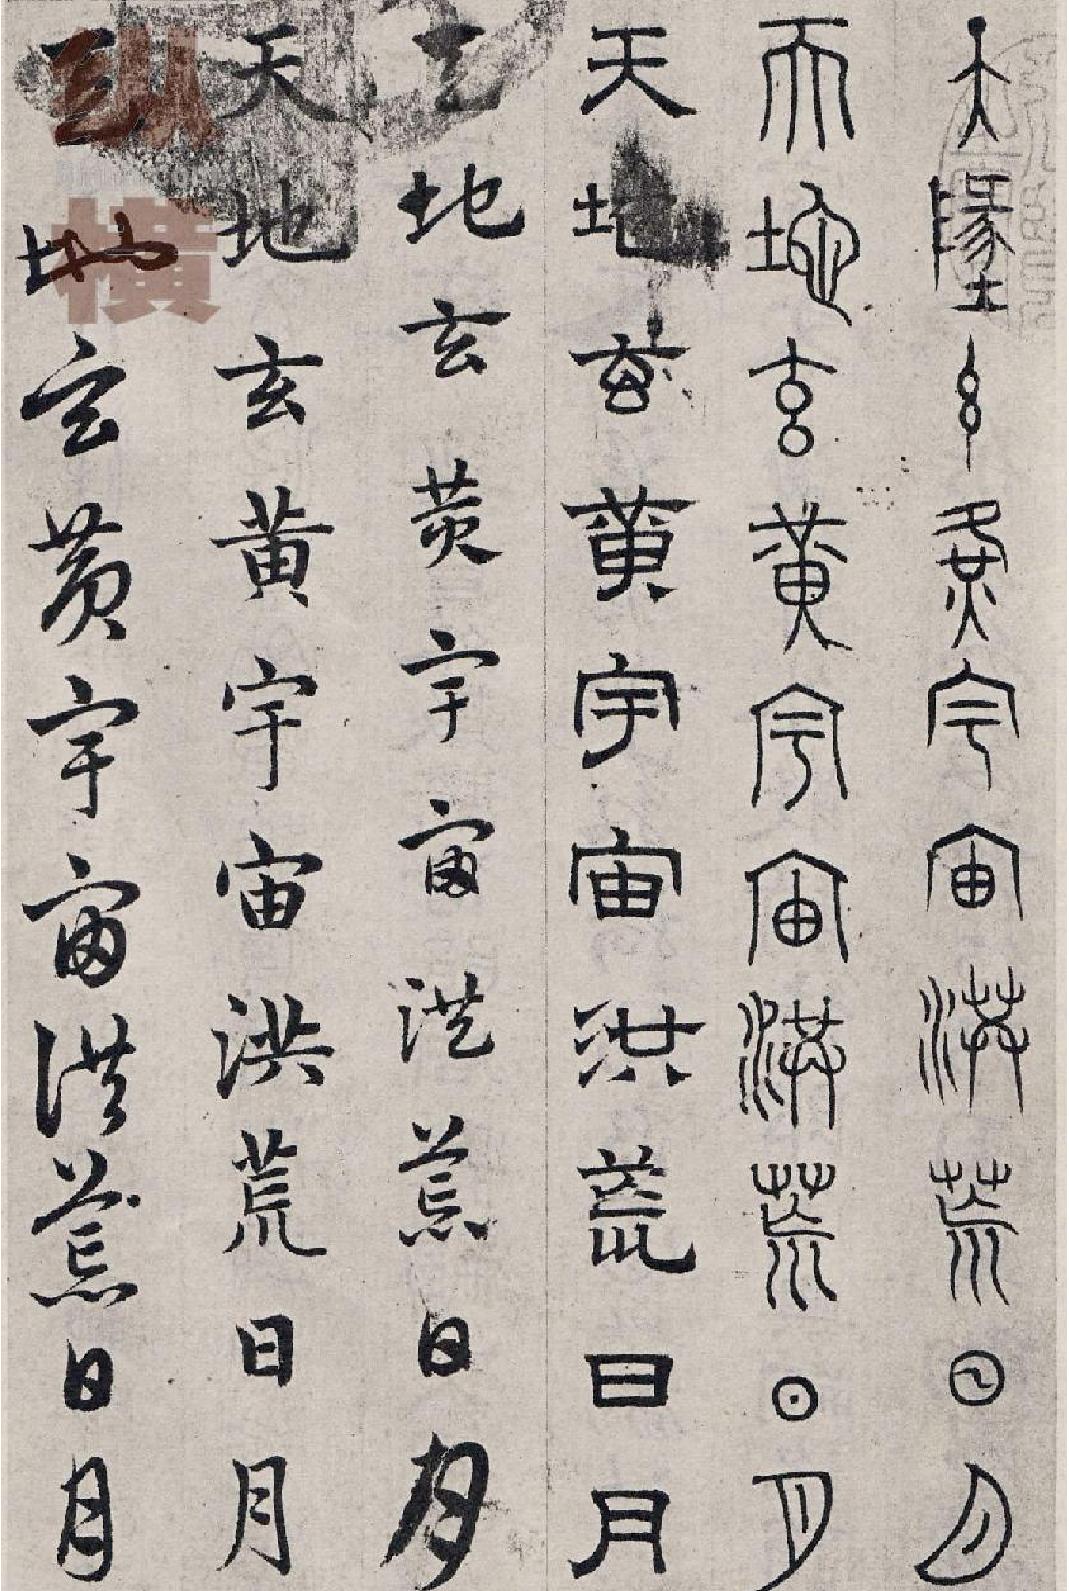 天墬玄黃宇宙洪荒日月
天地玄黃宇宙洪荒日月
天地玄黃宇宙洪荒日月
天地玄黄宇宙洪荒日月
天地玄黄宇宙洪荒日月
天地玄黄宇宙洪荒日月
纵横